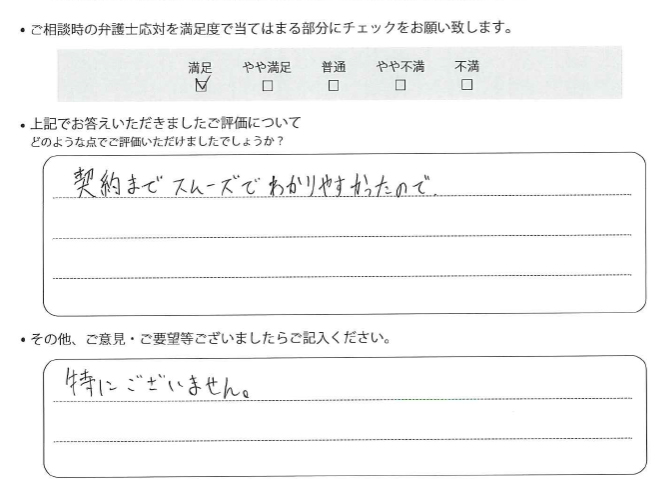 ・ご相談時の弁護士応対を満足度で当てはまる部分にチェックをお願い致します。
満足 やや満足 普通 やや不満 不満
☑ □ □ □ □
・上記でお答えいただきましたご評価について
どのような点でご評価いただけましたでしょうか？
契約までスムーズでわかりやすかったので.
・その他、ご意見・ご要望等ございましたらご記入ください。
特にございません。